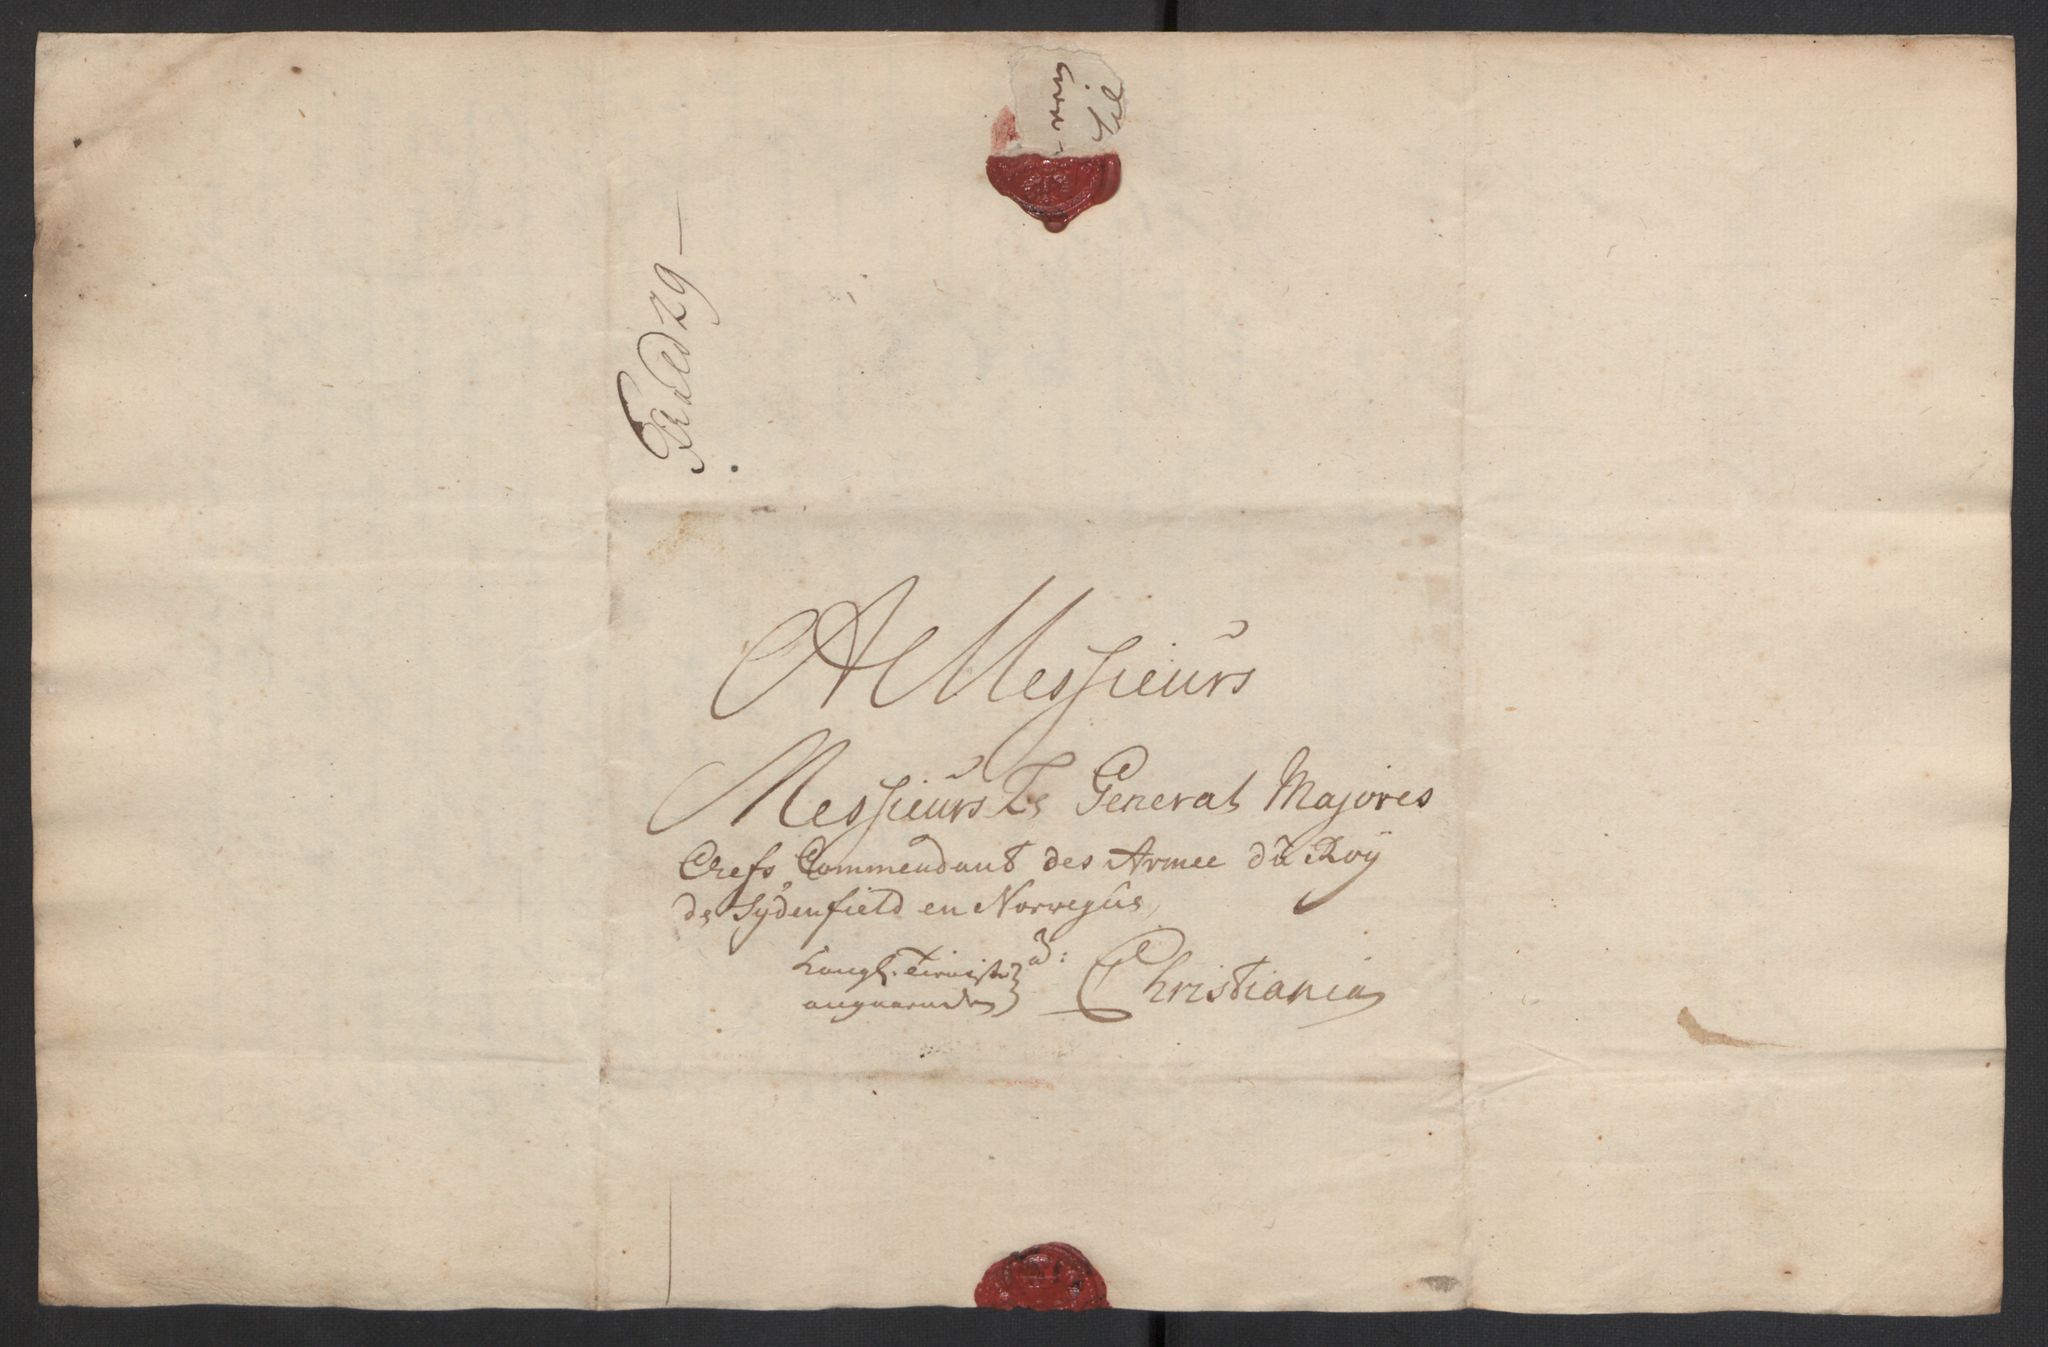 A Messieurs
Messieurs Ls General Majores
Chefs Commendant des Armee du Roÿ
de Sydenfield en Norvegue,
Kongl. Tieniste
angaaende
a: Christiania
29